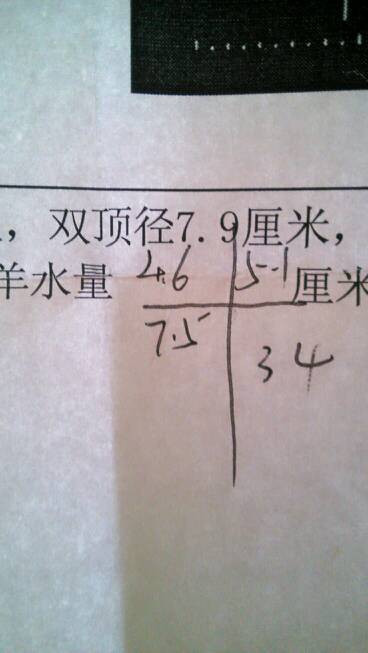 ，双顶径7.9厘米，
羊水量 4.6 5.1 厘米
7.5 34